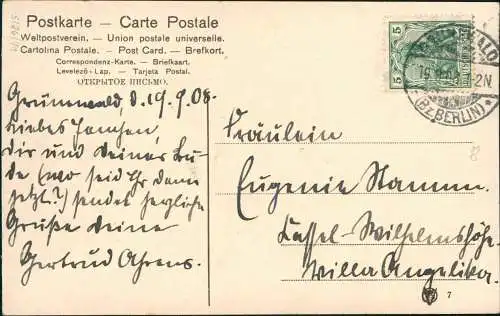 Postkarte — Carte Postale
Weltpostverein. — Union postale universelle.
Cartolina Postale. — Post Card. — Brefkort.
Correspondenz-Karte. — Briefkaart.
Levelező-Lap. — Tarjeta Postal.
ОТКРЫТОЕ ПИСЬМО.
Grunewald, d. 19.9.08.
Liebes
Dir und Deiner
(wo seid Ihr denn
jetzt?) sendet herzliche
Grüße Deine
Gertrud Ahrens.
5 5
(BZ.BERLIN)
Fräulein
Eugenie Stamm.
Cassel-Wilhelmshöhe.
Villa Angelika.
7